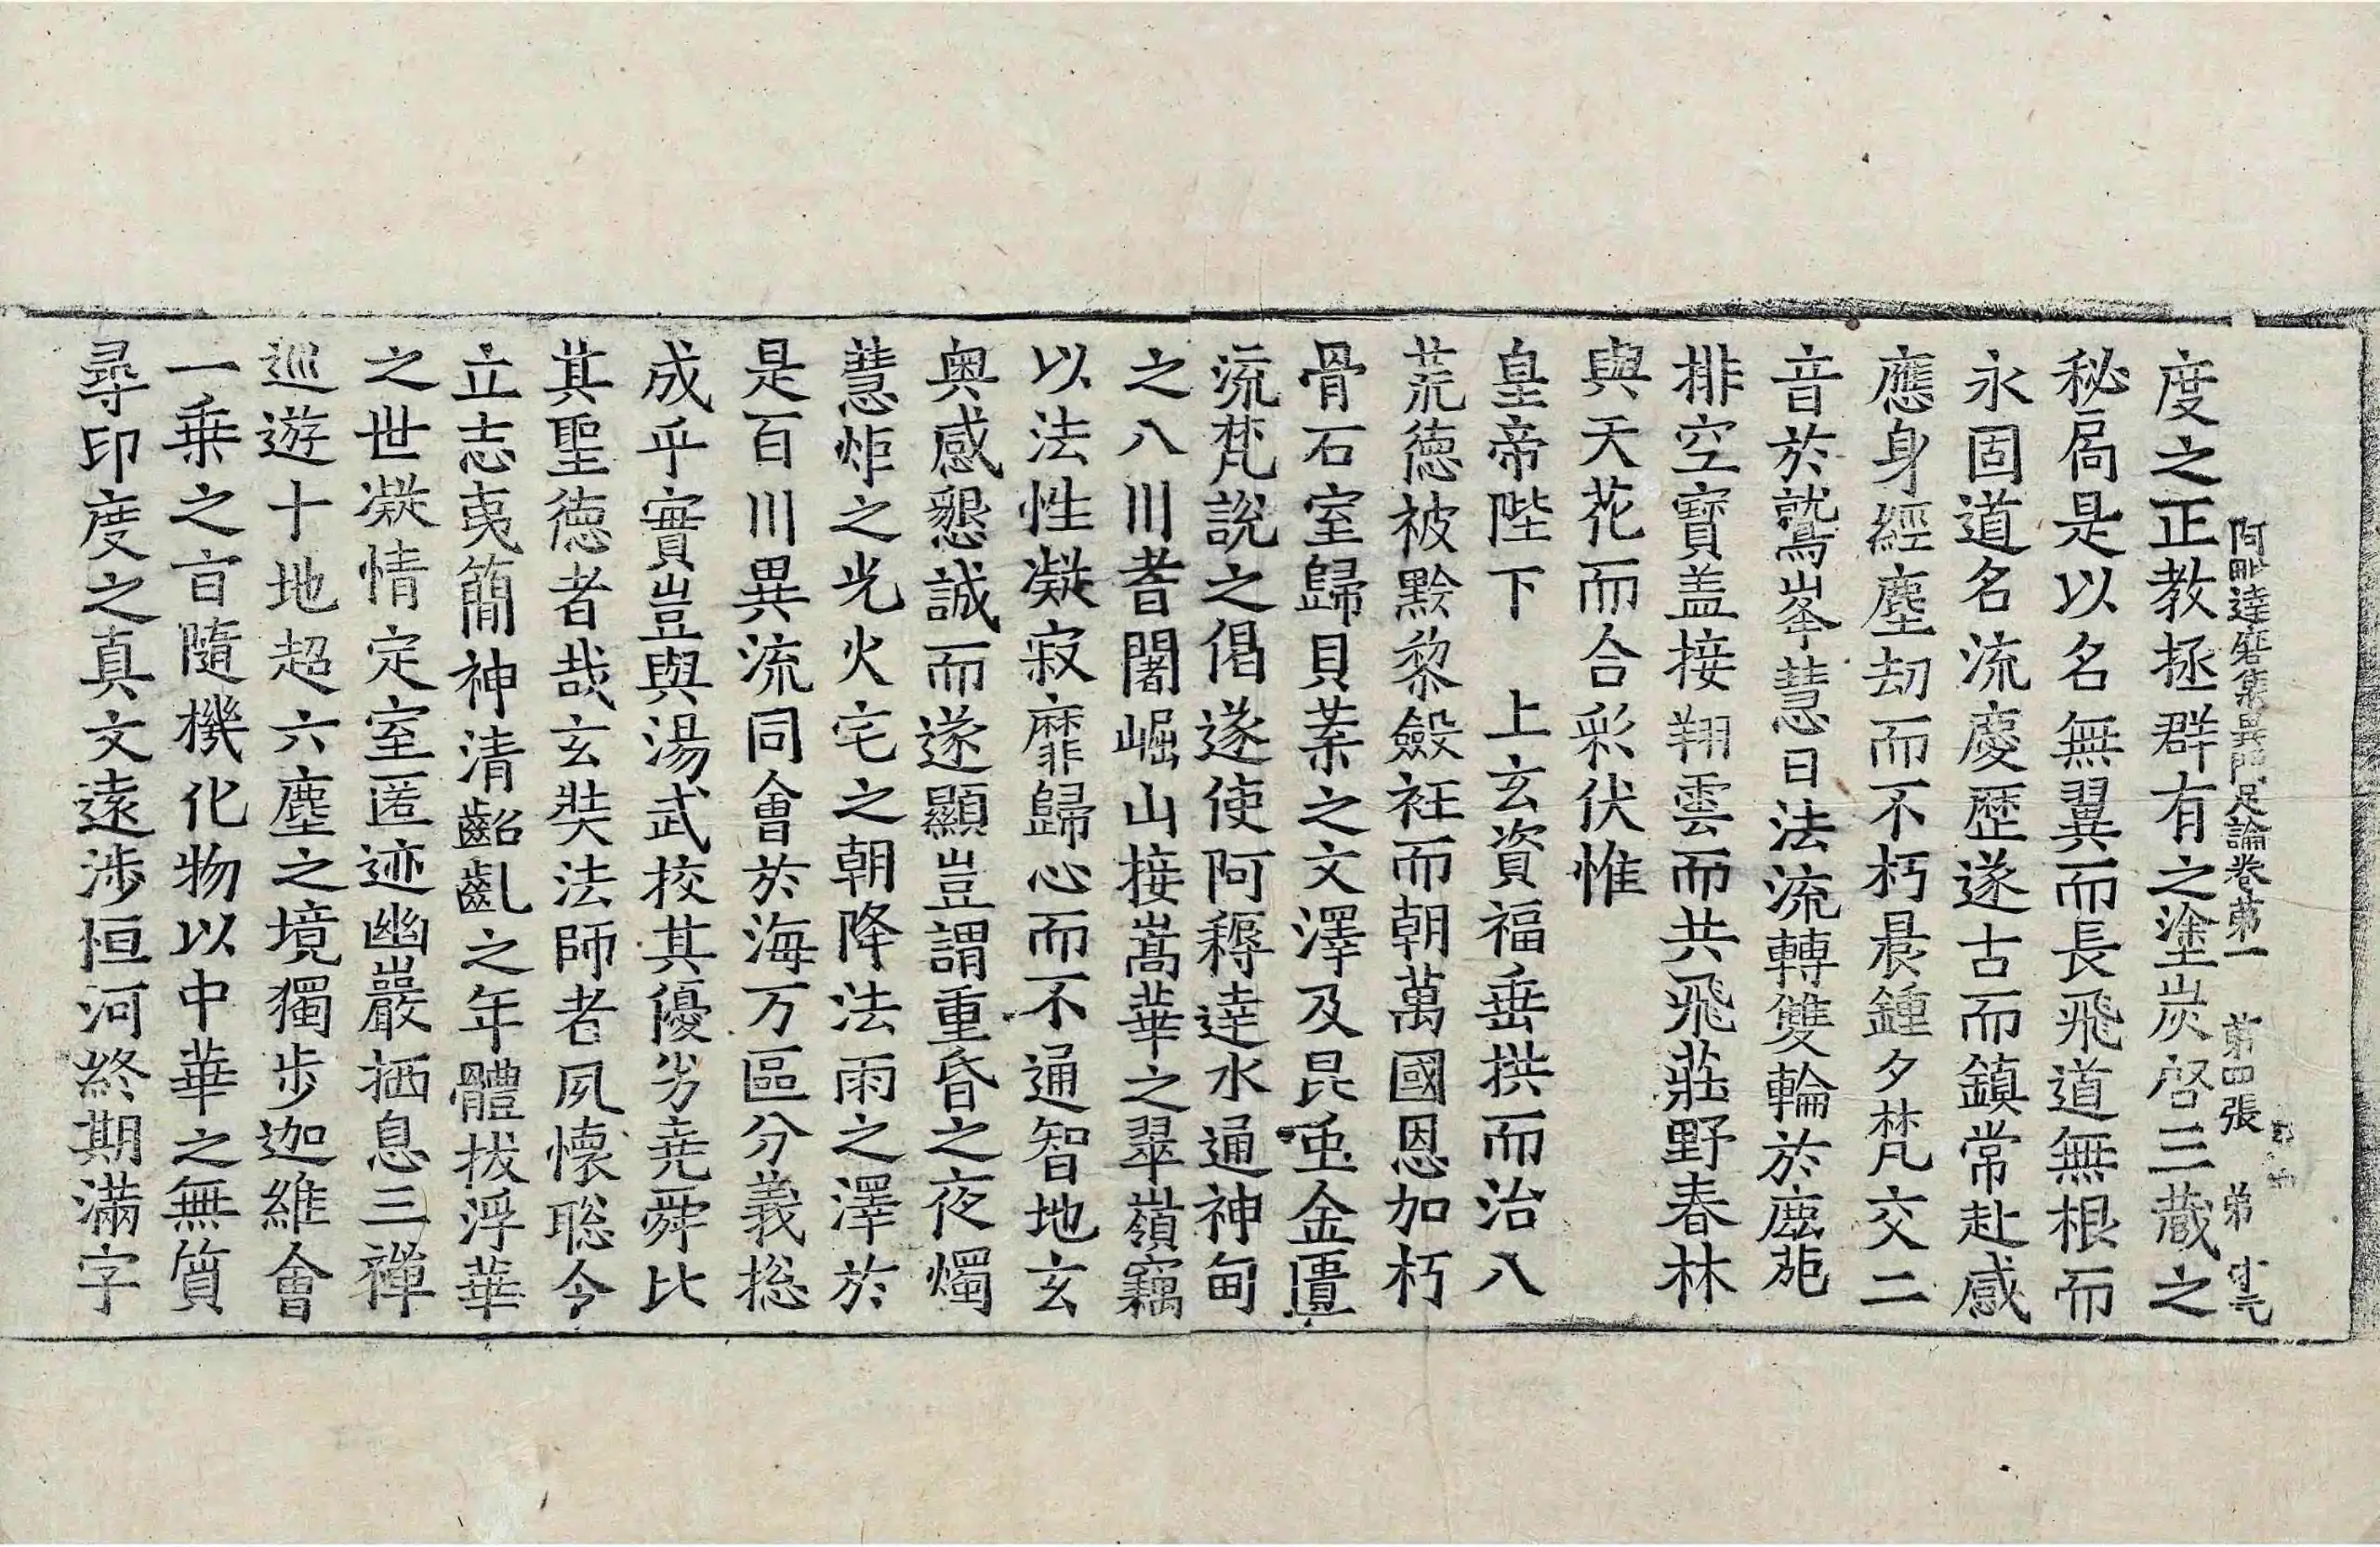 阿毗達磨集異門足論卷第一 第四張 弟
度之正教拯群有之塗炭啓三蔵之
秘扄是以名無翼而長飛道無根而
永固道名流慶歷遂古而鎮常赴感
應身經塵劫而不朽晨鍾夕梵交二
音於鷲峯慧日法流轉雙輪於鹿菀
排空寶盖接翔雲而共飛莊野春林
與天花而合彩伏惟
皇帝陛下 上玄資福垂拱而治八
荒德被黔黎斂衽而朝萬國恩加朽
骨石室歸貝葉之文澤及昆虫金匱
流梵說之偈遂使阿耨達水通神甸
之八川耆闍崛山接嵩華之翠嶺竊
以法性凝寂靡歸心而不通智地玄
奥感懇誠而遂顯豈謂重昏之夜燭
慧炬之光火宅之朝降法雨之澤於
是百川異流同會於海万區分義捴
成乎實豈與湯武挍其優劣堯舜比
其聖德者哉玄奘法師者夙懷聡令
立志夷簡神清齠齔之年體拔浮華
之世凝情定室匿迹幽巖栖息三禪
巡遊十地超六塵之境獨步迦維會
一乗之㫖隨機化物以中華之無質
尋印度之真文遠涉恒河終期滿字